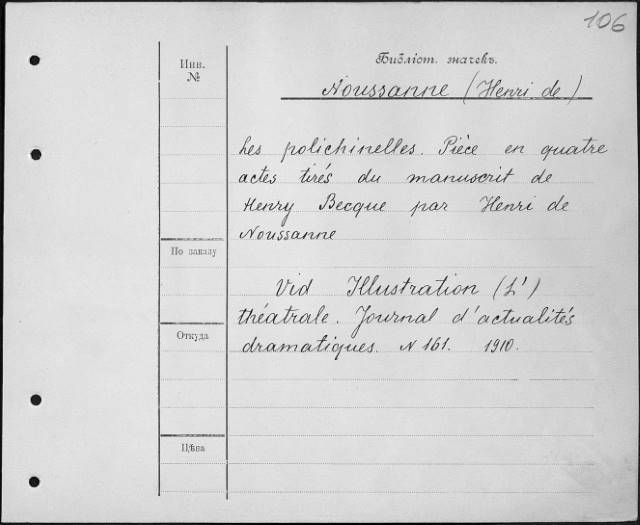 106
Инв.
№
Библіот. значекъ.
Noussanne (Henri de)
Les polichinelles. Pièce en quatre
actes tirés du manuscrit de
Henry Becque par Henri de
Noussanne
По заказу
Vid Illustration (L')
théatrale. Journal d'actualités
Откуда
dramatiques. N 161. 1910.
Цѣна